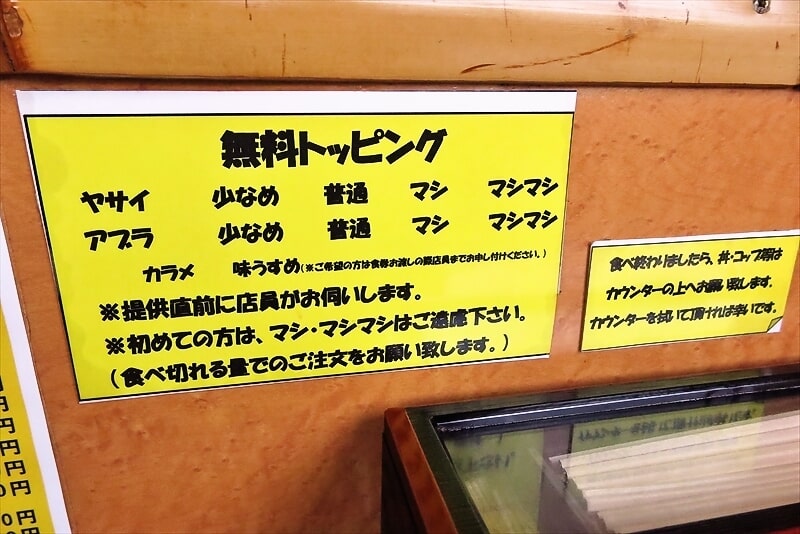 無料トッピング
ヤサイ 少なめ 普通 マシ マシマシ
アブラ 少なめ 普通 マシ マシマシ
カラメ 味うすめ(※ご希望の方は食券お渡しの際店員までお申し付けください。)
※提供直前に店員がお伺いします。
※初めての方は、マシ・マシマシはご遠慮下さい。
(食べ切れる量でのご注文をお願い致します。)
食べ終わりましたら、丼・コップ等は
カウンターの上へお願い致します。
カウンターを拭いて頂ければ幸いです。
円
円
円
円
0円
円